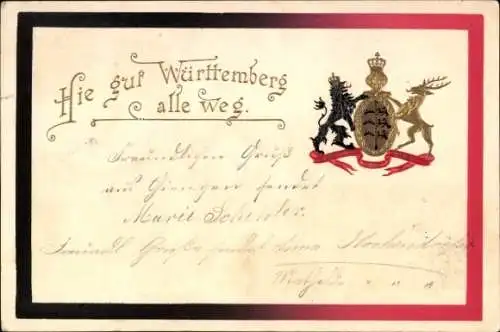 Hie gut Württemberg
alle weg.
Freundlichen Gruß
aus Giengen sendet
Marie
Freundl Grüße sendet